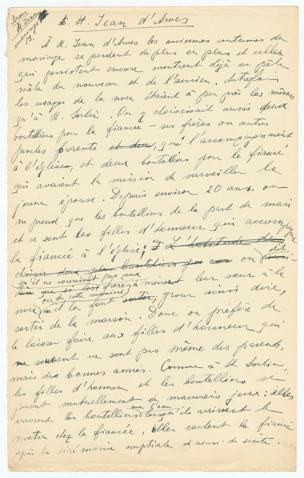 à St. Jean d'Arves
À St. Jean d'Arves les anciennes coutumes du
mariage se perdent de plus en plus et celles
qui persistent encore montrent déjà un pêle
mêle du nouveau et de l'ancien. Autrefois
les usages de la noce étaient à peu près les mêmes
qu'à St. Sorlin. On y choisissait aussi deux
boutelliers pour la fiancée – ses frères ou autres
proches parents et deux, qui l'accompagnaient
à l'église, et deux boutelliers pour le fiancé
qui avaient la mission de surveiller la
jeune épouse. Depuis environ 20 ans on
ne prend que les boutelliers de la part du mari
et ce sont les filles d'honneur qui accompagne
la fiancée à l'église.
leur sœur à la
pour ainsi dire,
sortir de la maison. Donc on préfère de
le laisser faire aux filles d'honneur qui
ne sont pas même des parents,
mais des bonnes amies. Comme à St. Sorlin,
les filles d'honneur et les boutelliers se
jouent mutuellement de mauvais jeux: elles
arrosent les boutelliers lorsqu'ils arrivent le
matin chez la fiancée, elles cachent la fiancée
après la cérémonie nuptiale et ainsi de suite.